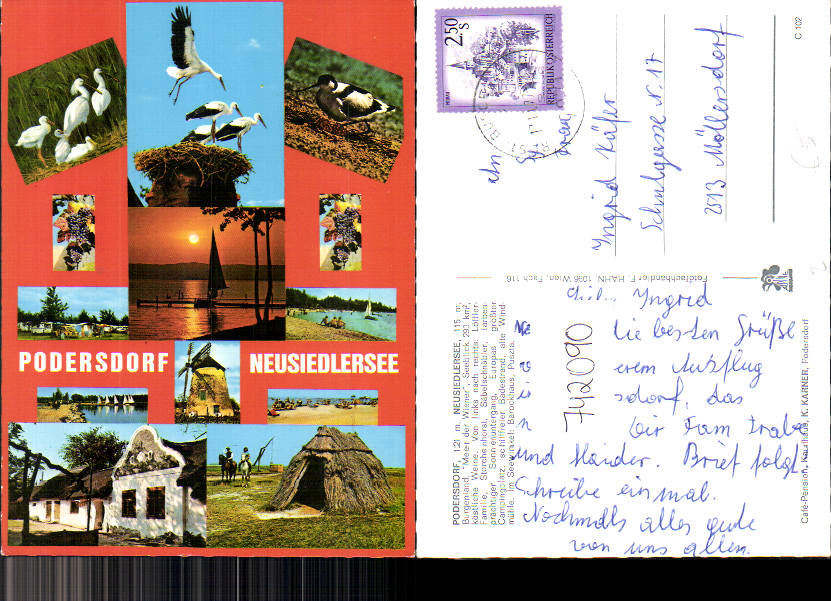 PODERSDORF NEUSIEDLERSEE
2.50 S
REPUBLIK ÖSTERREICH
C 102
An
Frau
Ingrid Käfer
Schulgasse N. 17
2513 Möllersdorf
Fotofachhändler F. HAHN, 1096 Wien, Fach 116
PODERSDORF, 121 m, NEUSIEDLERSEE, 115 m,
Burgenland. "Meer der Wiener". Seeblick 293 km²,
köstliche Weine. Von links nach rechts: Löffler-
Familie, Storchenhorst, Säbelschnäbler, farben-
prächtiger Sonnenuntergang, Europas größter
Campingplatz, schilffreier Badestrand, alte Wind-
mühle. Im Seewinkel: Barockhaus, Puszta.
Café-Pension, Kaufhaus, K. KARNER, Podersdorf
742090
Ingrid
Die besten Grüße
Ausflug
das
Fam
und Haider. Brief folgt
Schreibe einmal.
Nochmals alles gute
von uns allen.